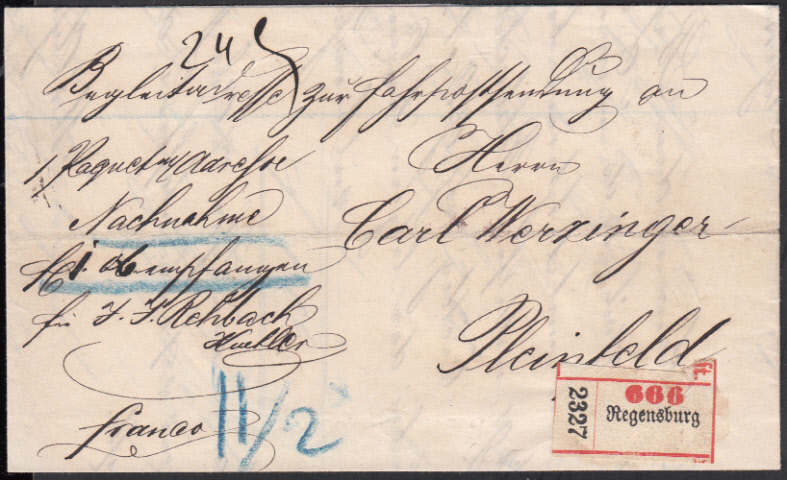 24
Begleitadresse zur Fahrpostsendung an
1 Paquet Adresse
Herrn
Nachnahme
Carl Werzinger
empfangen
für J. J. Rehbach
Pleinfeld
franco
11/2
666
Regensburg
2327